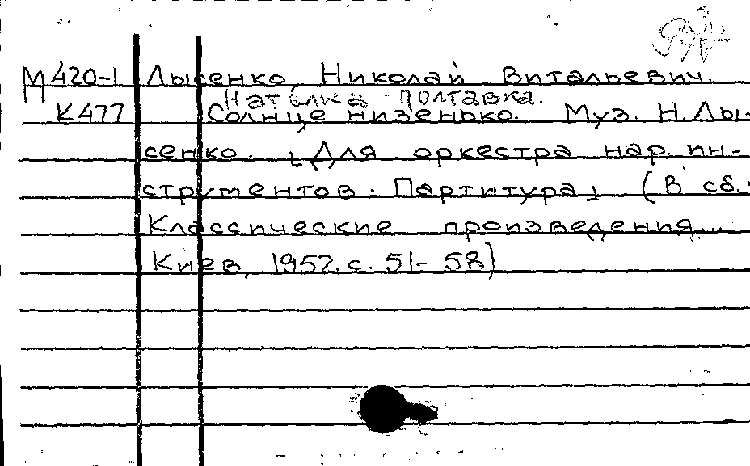 М420-1 Лысенко, Николай Витальевич.
Наталка Полтавка.
К477 Солнце низенько. Муз. Н. Лы-
сенко. [Для оркестра нар. ин-
струментов. Партитура] (В сб.:
Классические произведения.
Киев, 1952. с. 51-58)